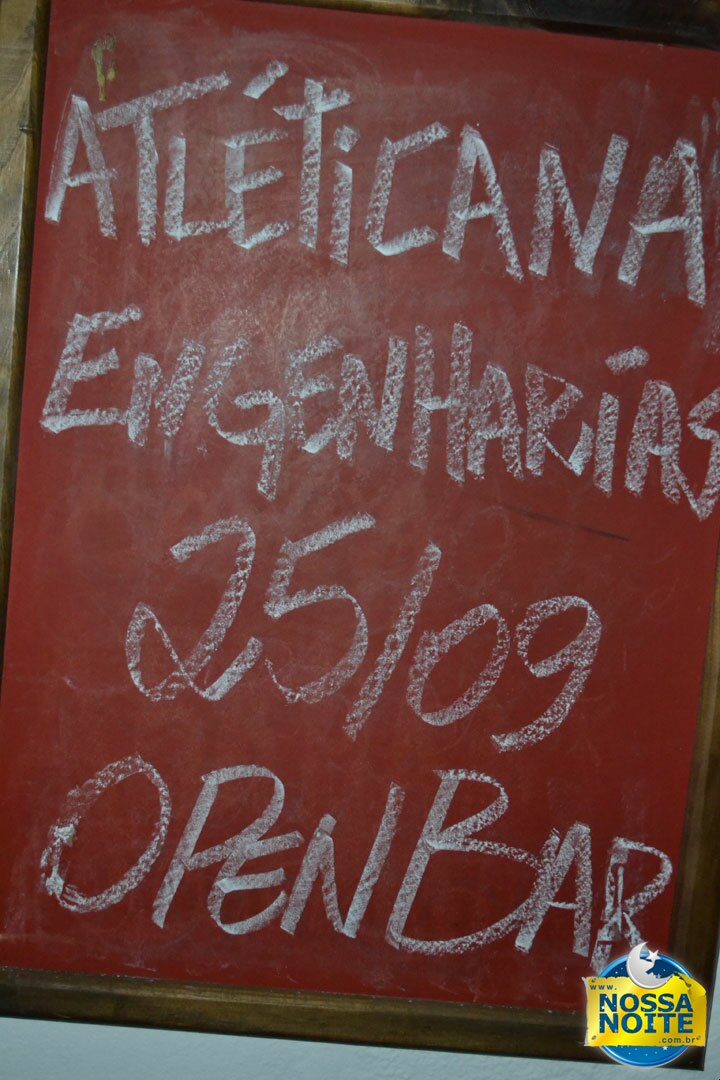 ATLÉTICANA
ENGENHARÍAS
25/09
OPEN BAR
www.
NOSSA
NOITE
.com.br